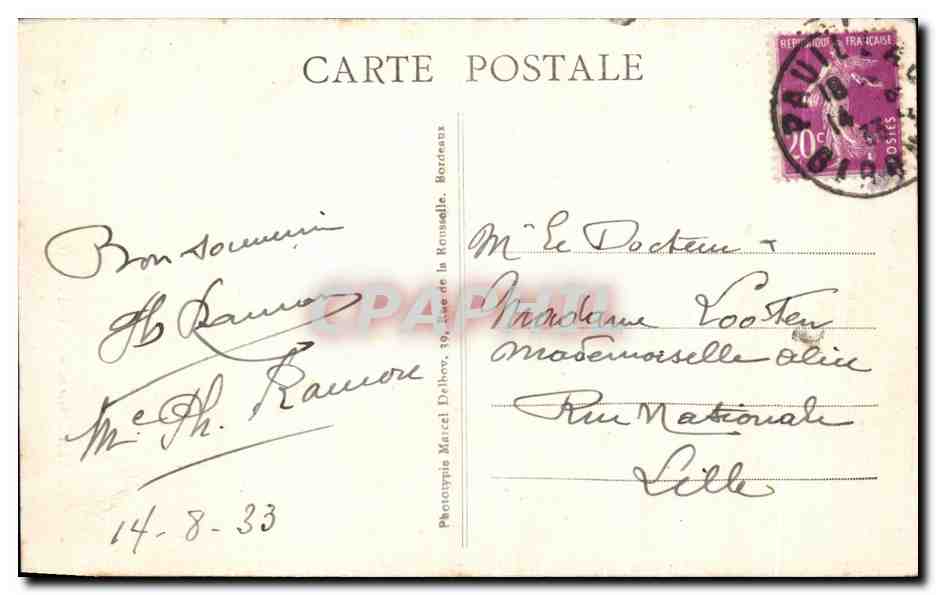 CARTE POSTALE
REPUBLIQUE FRANÇAISE
20c
POSTES
18
14
33
Bon souvenir
Ramon
Me Ph. Ramon
14-8-33
Phototypie Marcel Delboy, 39, Rue de la Rousselle, Bordeaux
Mr Le Docteur +
Madame Looten
Mademoiselle Alice
Rue Nationale
Lille
CPAPHIL